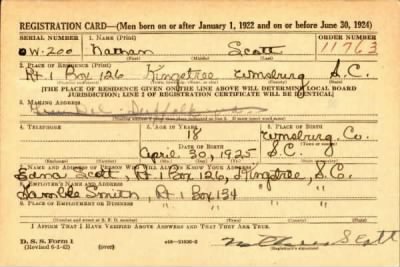 REGISTRATION CARD—(Men born on or after January 1, 1922 and on or before June 30, 1924)
SERIAL NUMBER 1. NAME (Print) ORDER NUMBER
W-200 Nathan Scott 11763
(First) (Middle) (Last)
2. PLACE OF RESIDENCE (Print)
Rt. 1 Box 126 Kingstree Wmsburg S.C.
(Number and street) (Town, township, village, or city) (County) (State)
[THE PLACE OF RESIDENCE GIVEN ON THE LINE ABOVE WILL DETERMINE LOCAL BOARD
JURISDICTION; LINE 2 OF REGISTRATION CERTIFICATE WILL BE IDENTICAL]
3. MAILING ADDRESS
4. TELEPHONE 5. AGE IN YEARS 6. PLACE OF BIRTH
18 Wmsburg Co.
DATE OF BIRTH (Town or county)
April 30, 1925 S.C.
(Exchange) (Number) (Mo.) (Day) (Yr.) (State or country)
7. NAME AND ADDRESS OF PERSON WHO WILL ALWAYS KNOW YOUR ADDRESS
Edna Scott, Rt 1 Box 126, Kingstree, S.C.
EMPLOYER'S NAME AND ADDRESS
Smith, Rt 1 Box 134 " "
PLACE OF EMPLOYMENT OR BUSINESS
" "
(Number and street or R. F. D. number) (Town) (County) (State)
I AFFIRM THAT I HAVE VERIFIED ABOVE ANSWERS AND THAT THEY ARE TRUE.
D. S. S. Form 1
(over) Nathan Scott